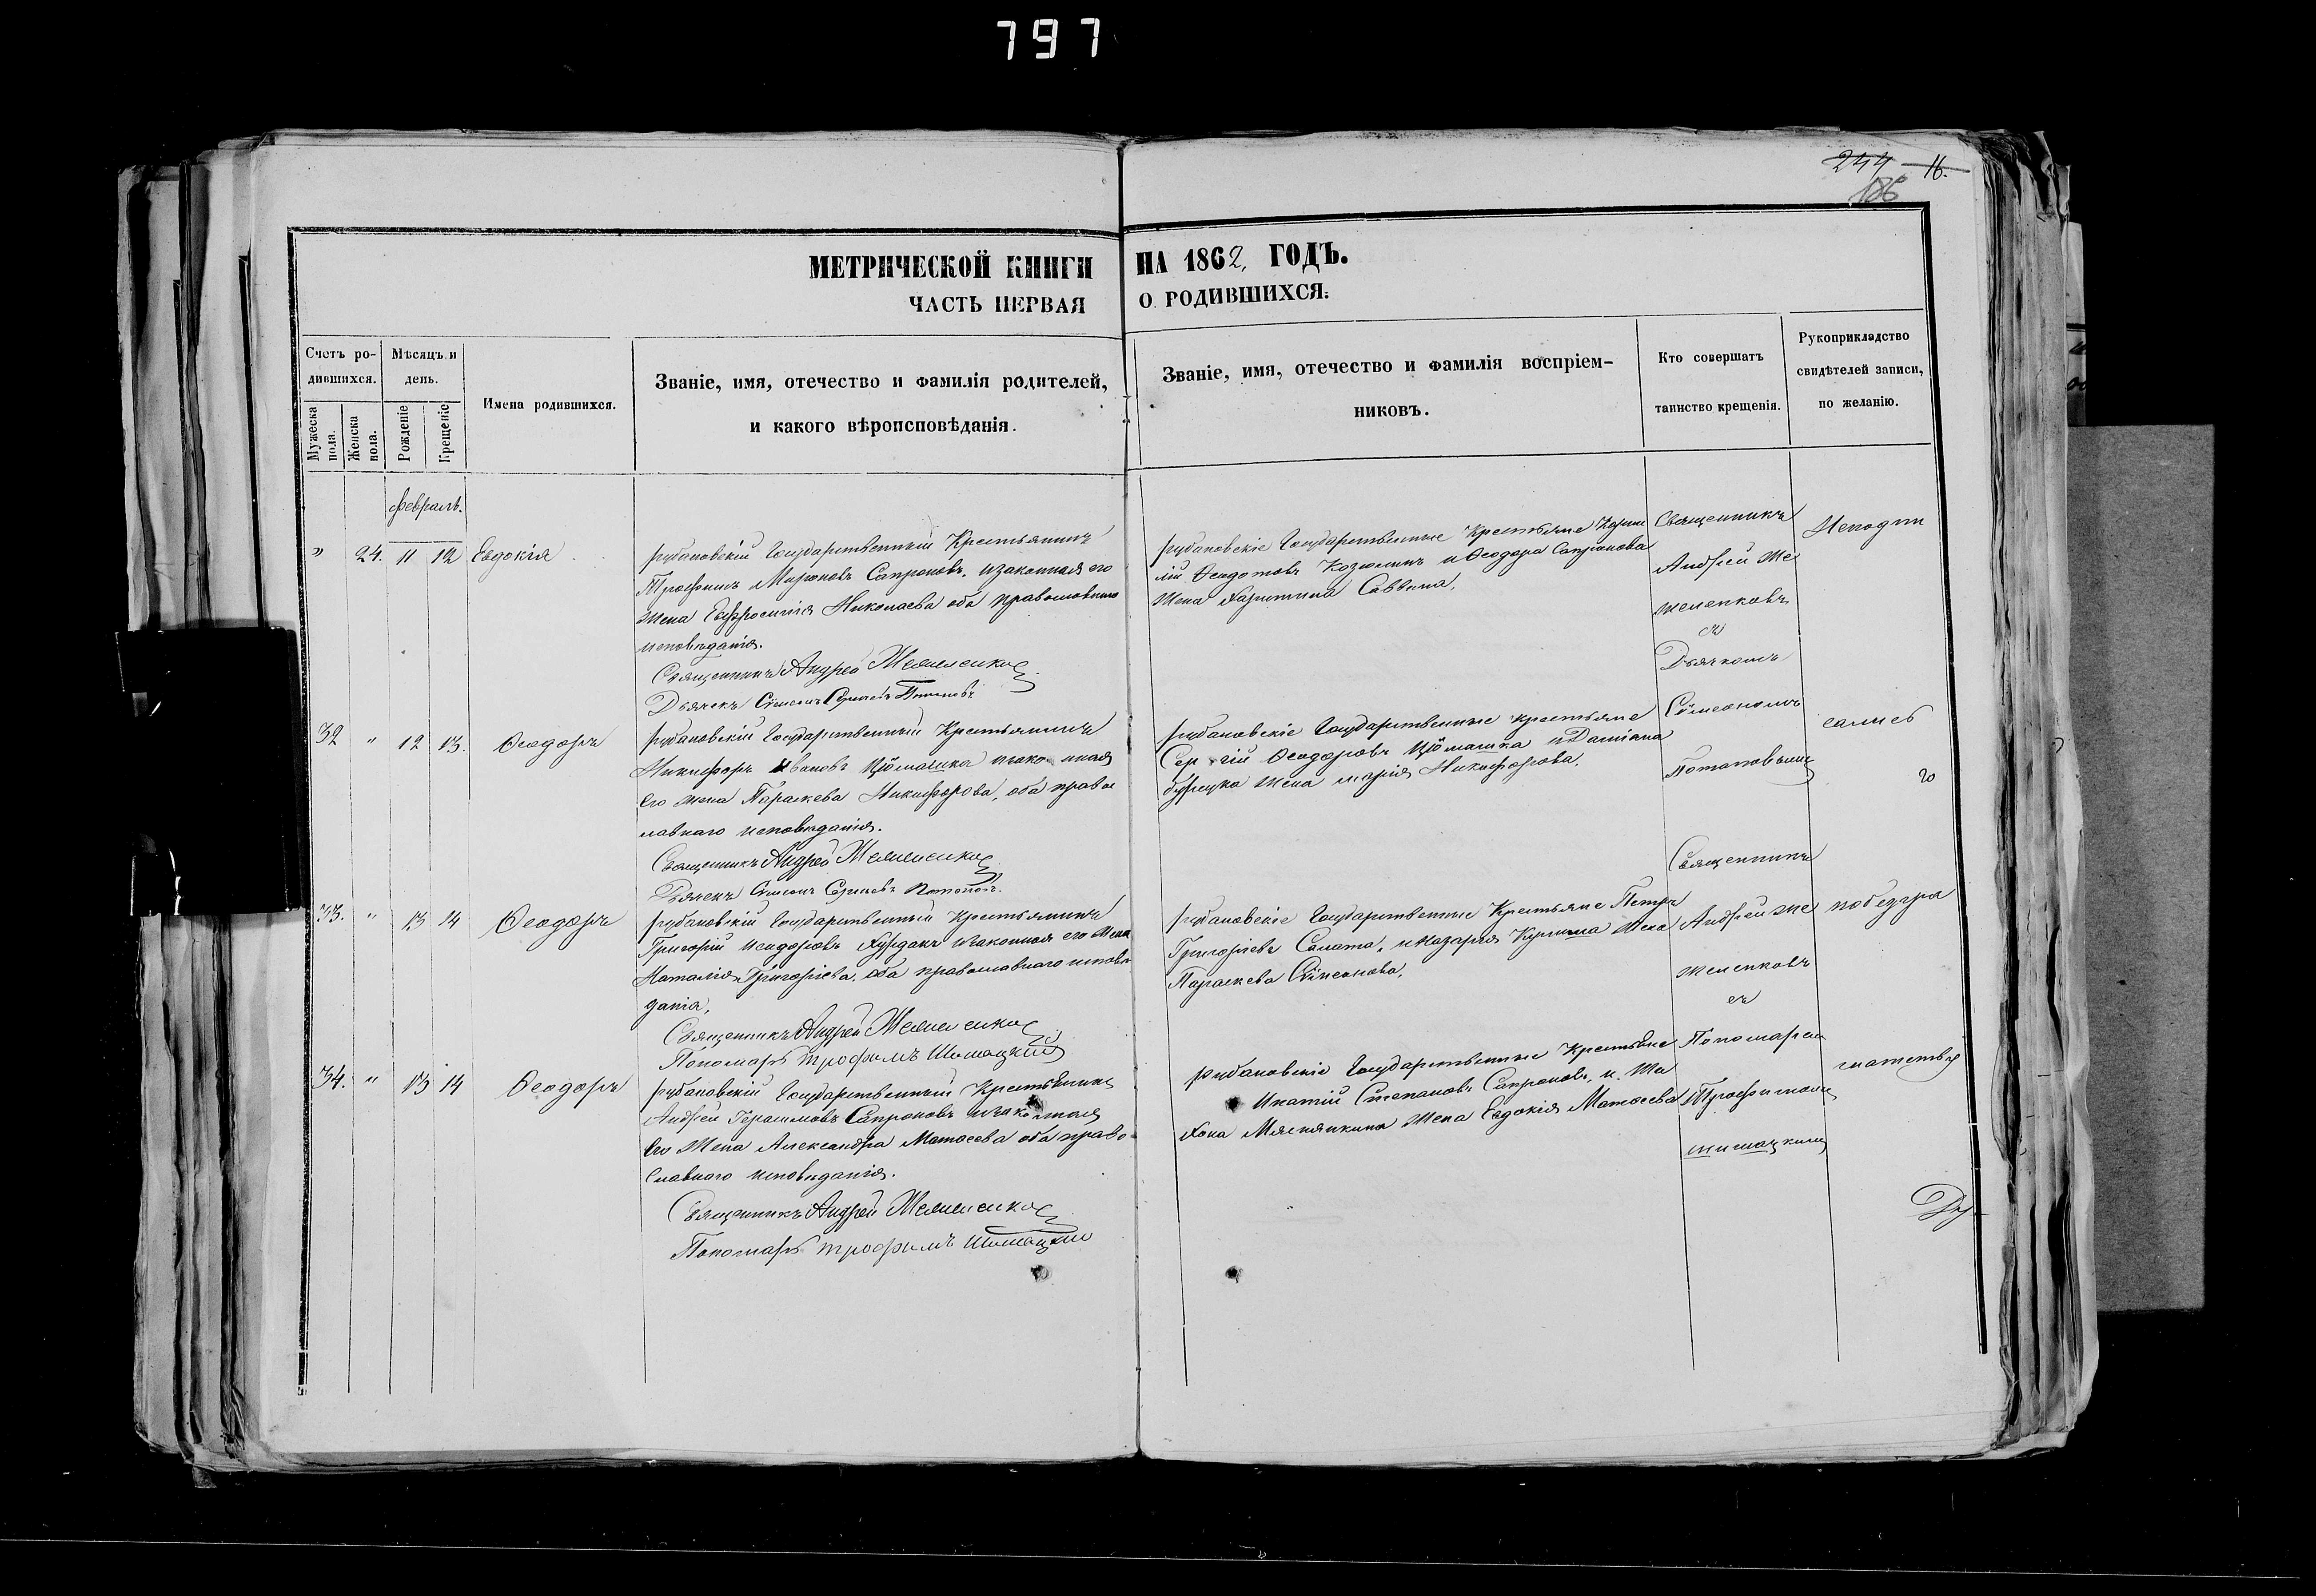 797
244 16.
186
МЕТРИЧЕСКОЙ КНИГИ НА 1862, ГОДЪ.
ЧАСТЬ ПЕРВАЯ О РОДИВШИХСЯ.
Счетъ ро-
дившихся.
Мужеска
пола.
Женска
пола.
Мѣсяцъ и
день.
Рожденіе
Крещеніе
Имена родившихся.
Званіе, имя, отечество и фамилія родителей,
и какого вѣроисповѣданія.
Званіе, имя, отечество и фамилія воспріем-
никовъ.
Кто совершатъ
таинство крещенія.
Рукоприкладство
свидѣтелей записи,
по желанію.
февраль.
" 24. 11 12 Евдокія
рубановскій Государственный Крестьянинъ
Трофимъ Мироновъ Сапроновъ, и законная его
жена Евфросинія Николаева оба православнаго
исповѣданія.
Священникъ Андрей
Дьячекъ Сѵмеонъ Сергіевъ Потаповъ
рубановскіе Государственные Крестьяне
лій Ѳеодотовъ Козюминъ и Ѳеодора Сапронова
жена Харитина Саввина.
Священникъ
Андрей Же
желенковъ
съ
Дьячкомъ
Сѵмеономъ
Потаповымъ
32 " 12 13. Ѳеодоръ
рубановскій Государственный Крестьянинъ
Никифоръ Ивановъ и законная
его жена Параскева Никифорова, оба правос
лавнаго исповѣданія.
Священникъ Андрей
Дьячекъ Сѵмеонъ Сергіевъ Потаповъ.
рубановскіе Государственные крестьяне
Сергій Ѳеодоровъ и Даміана
жена марія Никифорова.
33. " 13 14 Ѳеодоръ
рубановскій Государственный Крестьянинъ
Григорій Исидоровъ Бурдакъ и законная его жена
Наталія Григоріева, оба православнаго исповѣ
данія,
Священникъ Андрей
Пономарь трофимъ Шишацкій
рубановскіе Государственные Крестьяне Петръ
Григоріевъ Салата, и Назарія жена
Параскева Сѵмеонова,
Священникъ
Андрей же
желенковъ
съ
Пономаремъ
Трофимомъ
шишацкимъ
34. " 13 14 Ѳеодоръ
рубановскій Государственный Крестьянинъ
Андрей Герасимовъ Сапроновъ и законная
его жена Александра Матѳеева оба право-
славнаго исповѣданія.
Священникъ Андрей
Пономарь трофимъ Шишацкій
рубановскіе Государственные Крестьяне
Ипатій Степановъ Сапроновъ, и
жена Евдокія Матѳеева